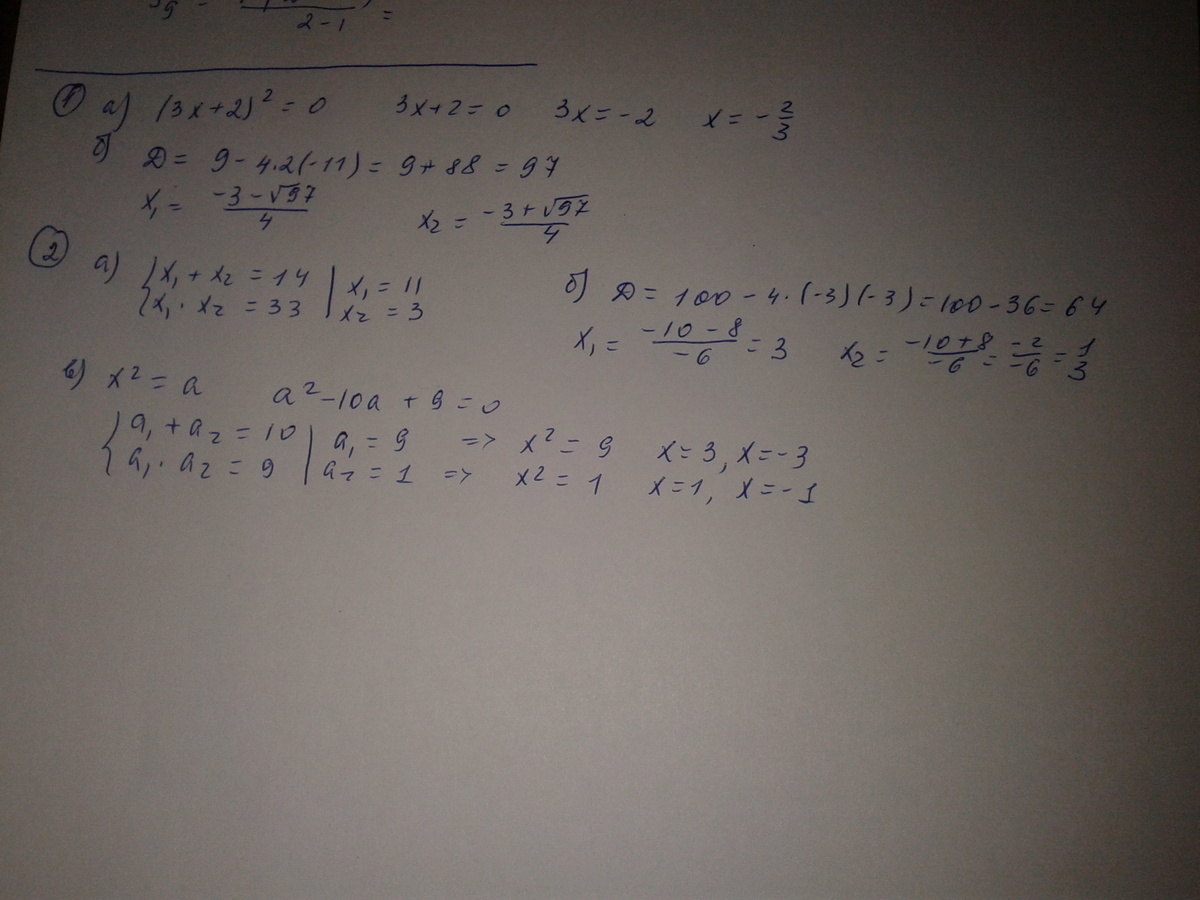 2-1 =
① а) (3x+2)² = 0 3x+2 = 0 3x = -2 x = -2/3
б) Д = 9 - 4·2(-11) = 9 + 88 = 97
x₁ = (-3-√97)/4 x₂ = (-3+√97)/4
② а) { x₁ + x₂ = 14 | x₁ = 11
x₁ · x₂ = 33 | x₂ = 3
б) Д = 100 - 4·(-3)(-3) = 100 - 36 = 64
x₁ = (-10-8)/-6 = 3 x₂ = (-10+8)/-6 = -2/-6 = 1/3
в) x² = a a² - 10a + 9 = 0
{ a₁ + a₂ = 10 | a₁ = 9 => x² = 9 x = 3, x = -3
a₁ · a₂ = 9 | a₂ = 1 => x² = 1 x = 1, x = -1